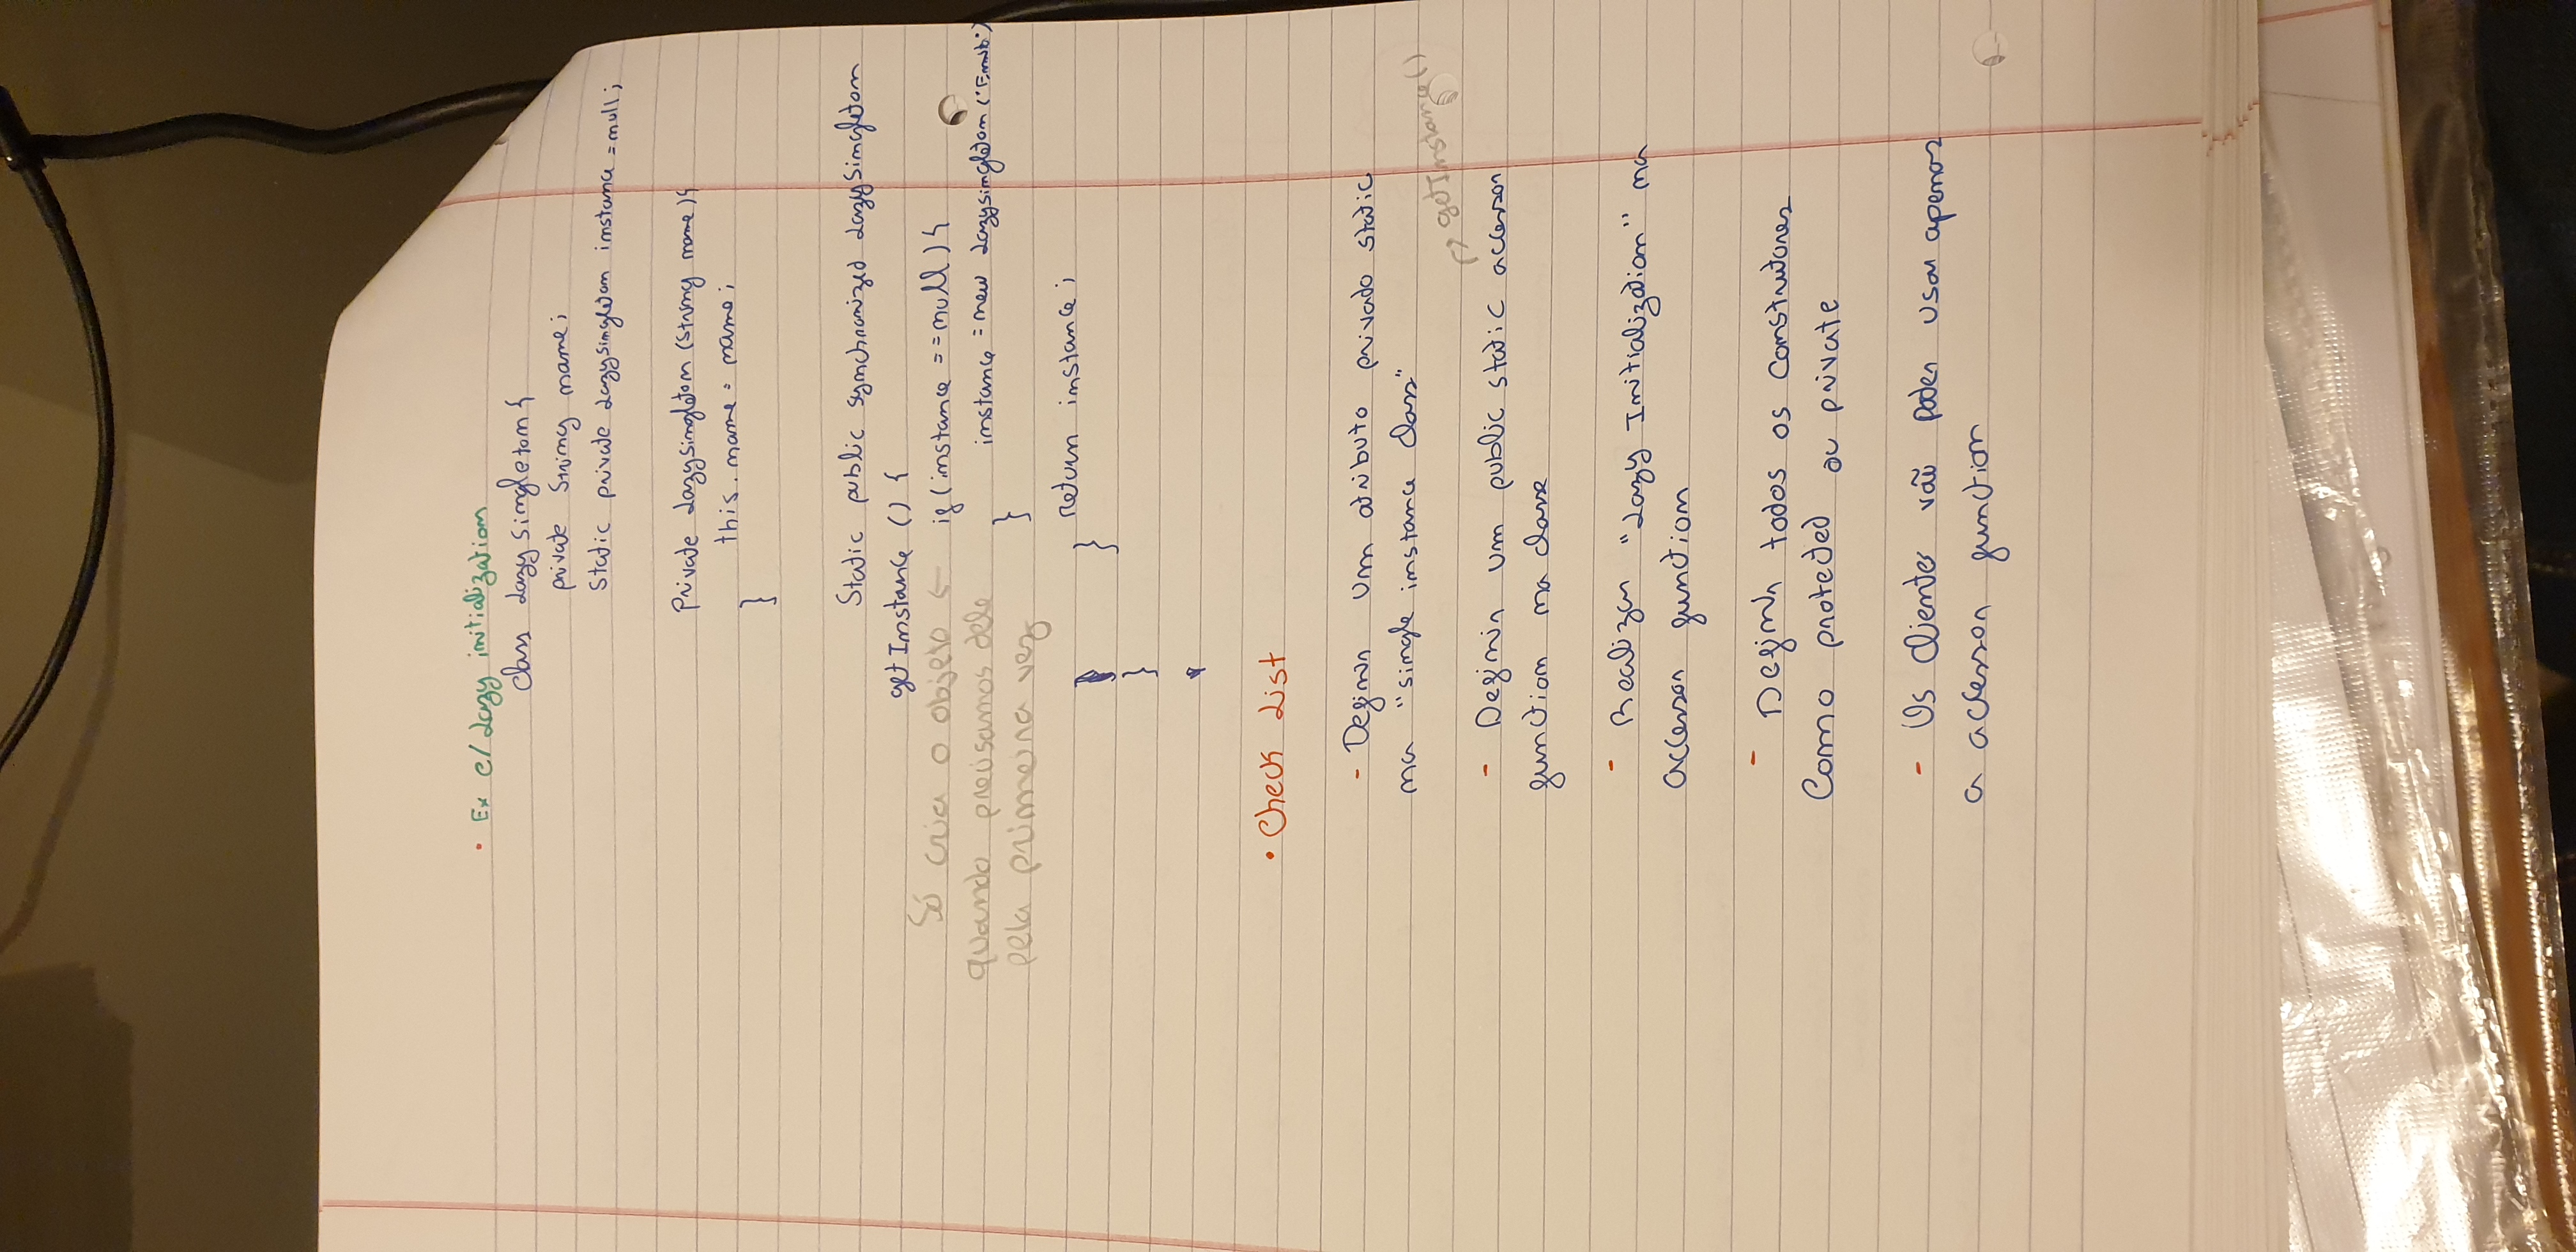 • Ex c/ Lazy initialization
class LazySingleton {
private String name;
Static private LazySingleton instance = null;
Private LazySingleton (String name) {
this.name = name;
}
Static public synchronized LazySingleton
getInstance () {
Só cria o objeto ← if (instance == null) {
quando precisamos dele instance = new LazySingleton (
pela primeira vez }
return instance;
}
}
• Check List
- Definir um atributo privado static
na "single instance class"
→ getInstance()
- Definir um public static accessor
function na classe
- Realizar "Lazy Initialization" na
accessor function
- Definir todos os construtores
Como protected ou private
- Os Clientes vão poder usar apenas
a accessor function